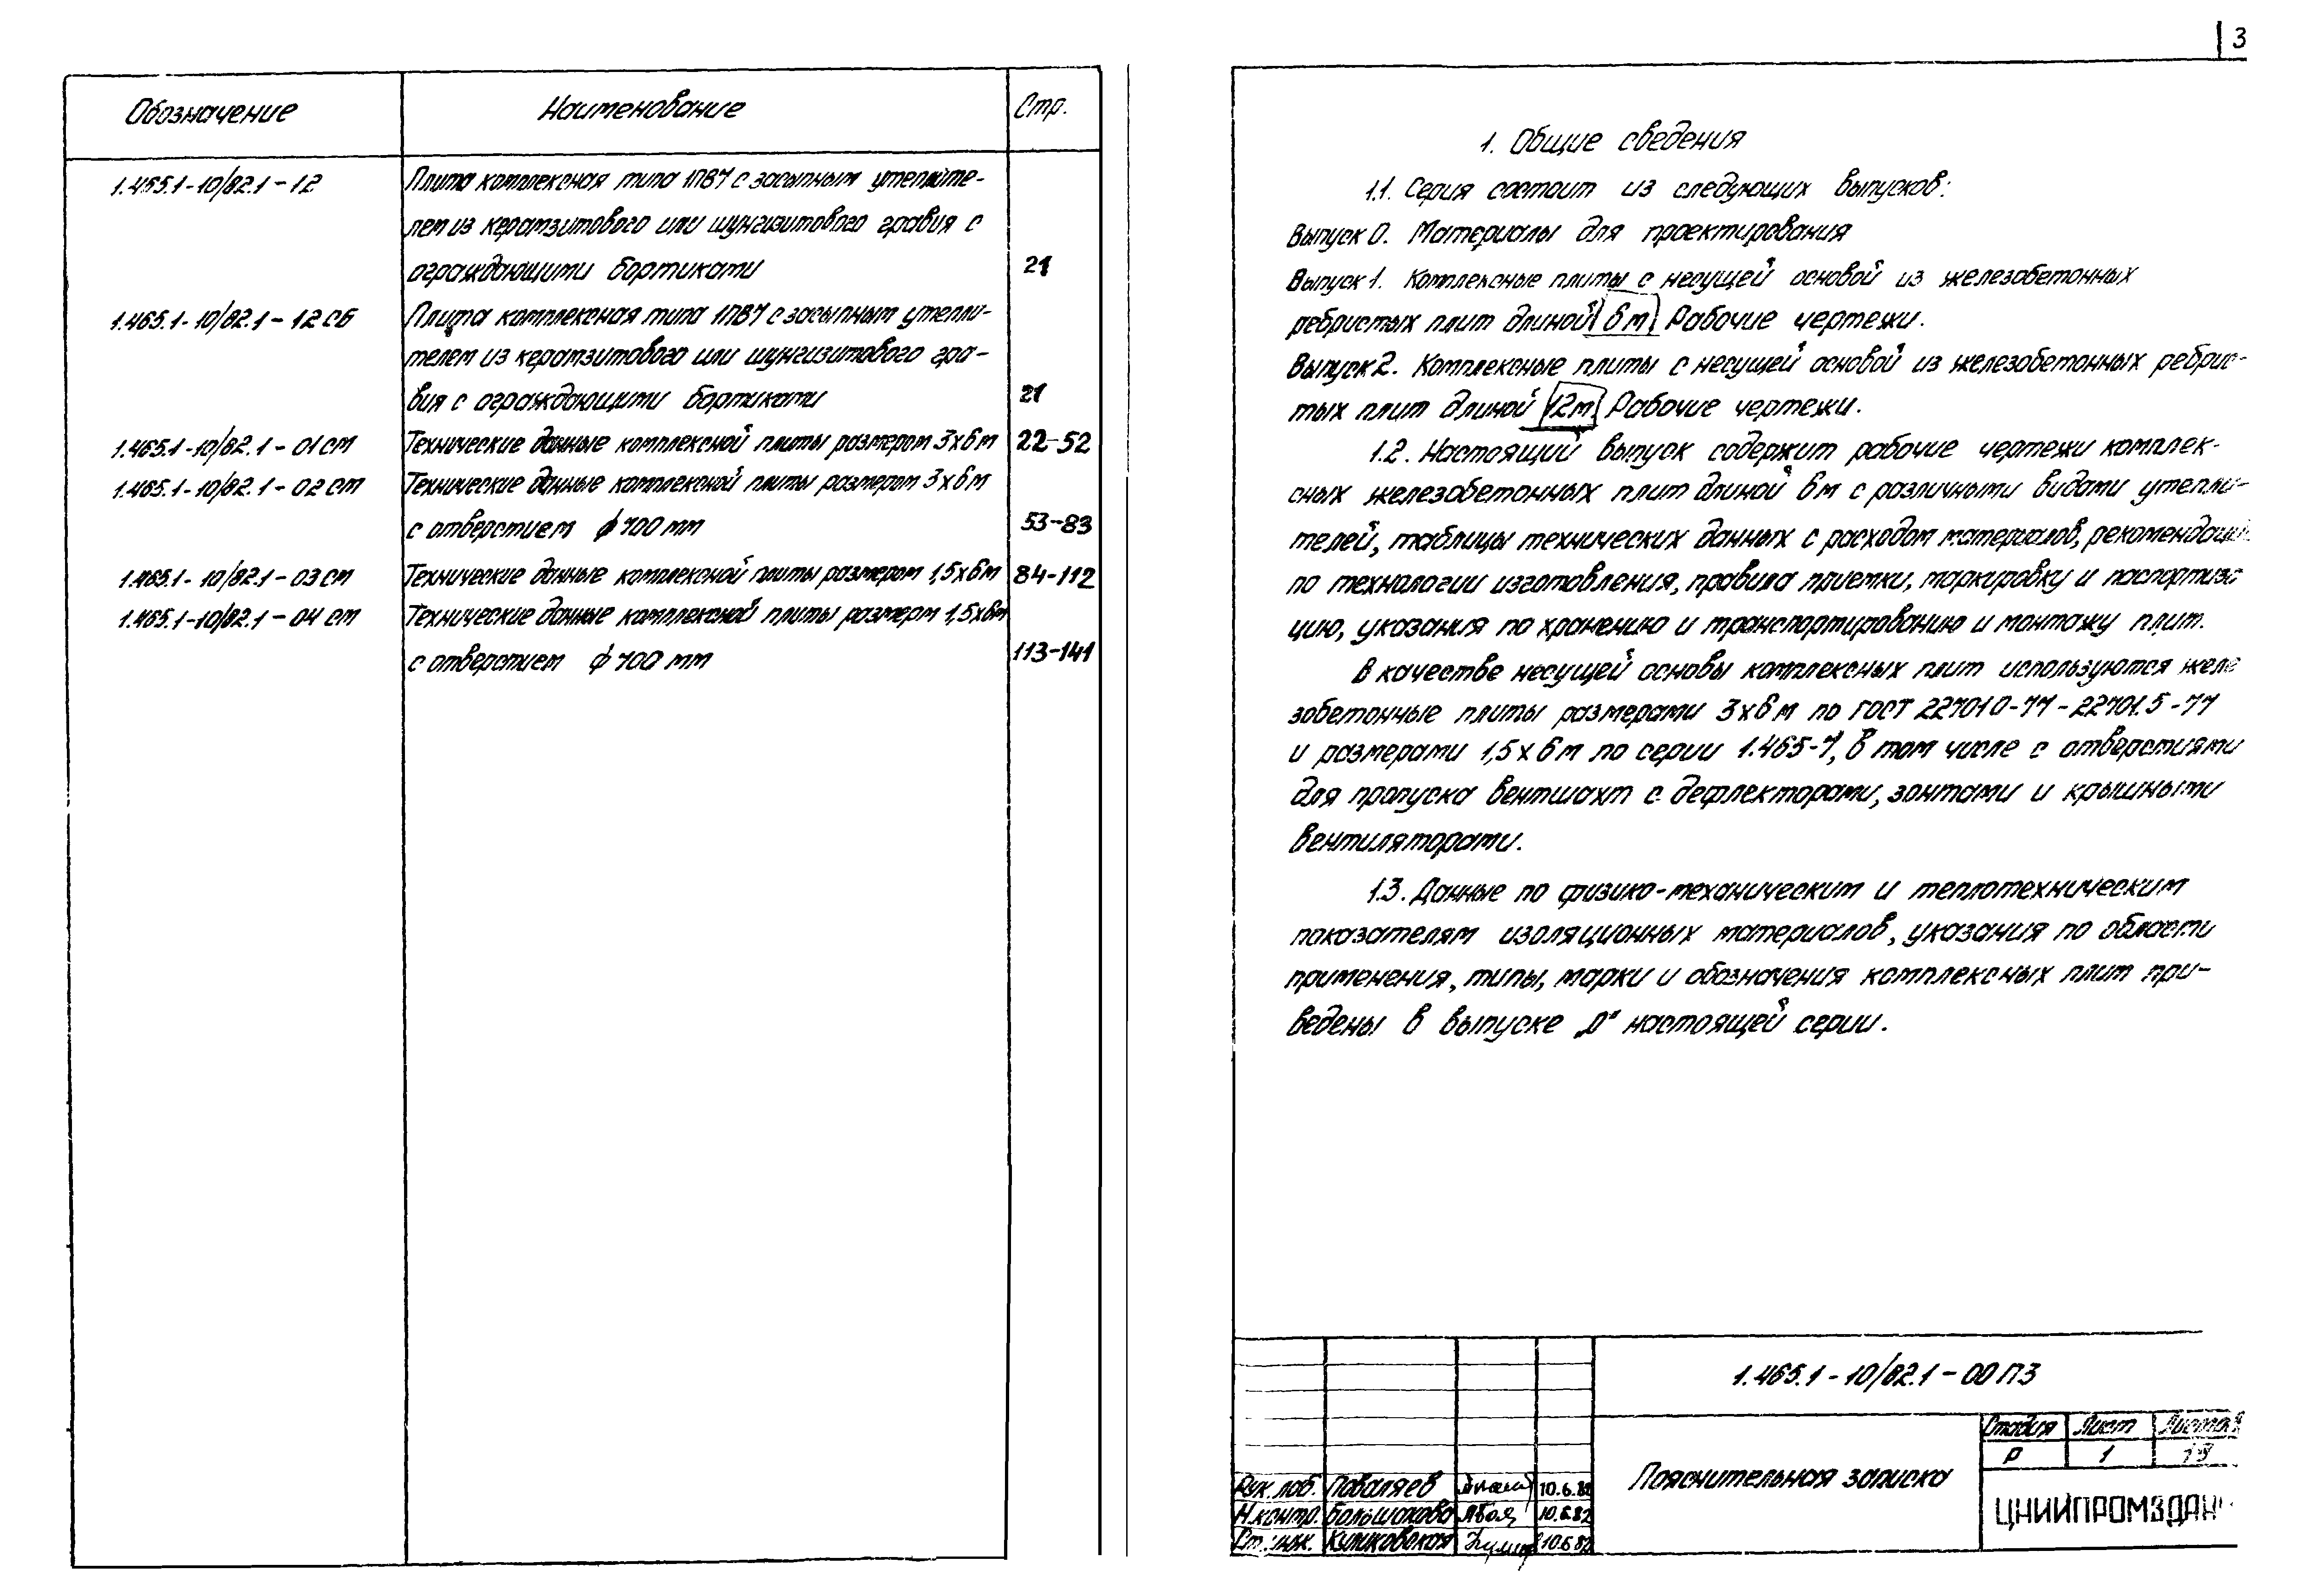 3
Обозначение Наименование Стр.
1.465.1-10/82.1-12 Плита комплексная типа 1ПВ7 с засыпным утеплите-
лем из керамзитового или шунгизитового гравия с
ограждающими бортиками 21
1.465.1-10/82.1-12СБ Плита комплексная типа 1ПВ7 с засыпным утепли-
телем из керамзитового или шунгизитового гра-
вия с ограждающими бортиками 21
1.465.1-10/82.1-01СМ Технические данные комплексной плиты размером 3х6м 22-52
1.465.1-10/82.1-02СМ Технические данные комплексной плиты размером 3х6м
с отверстием ф 700 мм 53-83
1.465.1-10/82.1-03СМ Технические данные комплексной плиты размером 1,5х6м 84-112
1.465.1-10/82.1-04СМ Технические данные комплексной плиты размером 1,5х6м
с отверстием ф 700 мм 113-141
1. Общие сведения
1.1. Серия состоит из следующих выпусков:
Выпуск 0. Материалы для проектирования
Выпуск 1. Комплексные плиты с несущей основой из железобетонных
ребристых плит длиной 6м. Рабочие чертежи.
Выпуск 2. Комплексные плиты с несущей основой из железобетонных ребрис-
тых плит длиной 12м. Рабочие чертежи.
1.2. Настоящий выпуск содержит рабочие чертежи комплек-
сных железобетонных плит длиной 6м с различными видами утепли-
телей, таблицы технических данных с расходом материалов, рекомендаци
по технологии изготовления, правила приемки, маркировку и паспортиза
цию, указания по хранению и транспортированию и монтажу плит.
В качестве несущей основы комплексных плит используются желе
зобетонные плиты размерами 3х6м по ГОСТ 22701.0-77-22701.5-77
и размерами 1,5х6м по серии 1.465-7, в том числе с отверстиями
для пропуска вентшахт с дефлекторами, зонтами и крышными
вентиляторами.
1.3. Данные по физико-механическим и теплотехническим
показателям изоляционных материалов, указания по области
применения, типы, марки и обозначения комплексных плит при-
ведены в выпуске „0" настоящей серии.
1.465.1-10/82.1-00ПЗ
Пояснительная записка
Стадия Лист Листов
Р 1
ЦНИИПРОМЗДАН
Рук.лаб. Поваляев 10.6.82
Н.контр. Большакова 10.6.82
Ст.инж. Куликовская 10.6.82